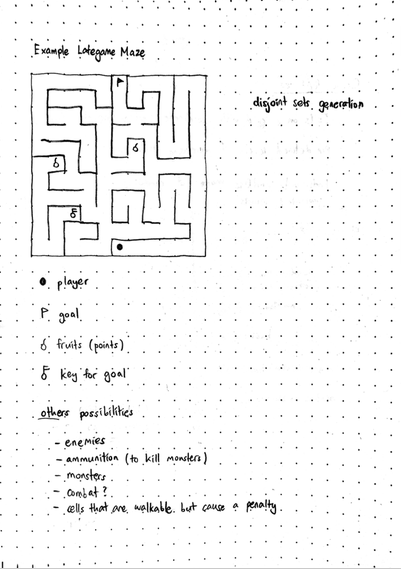 Example Lategame Maze
disjoint sets generation
player
goal
fruits (points)
key for goal
others possibilities
- enemies
- ammunition (to kill monsters)
- monsters
- combat?
- cells that are walkable but cause a penalty